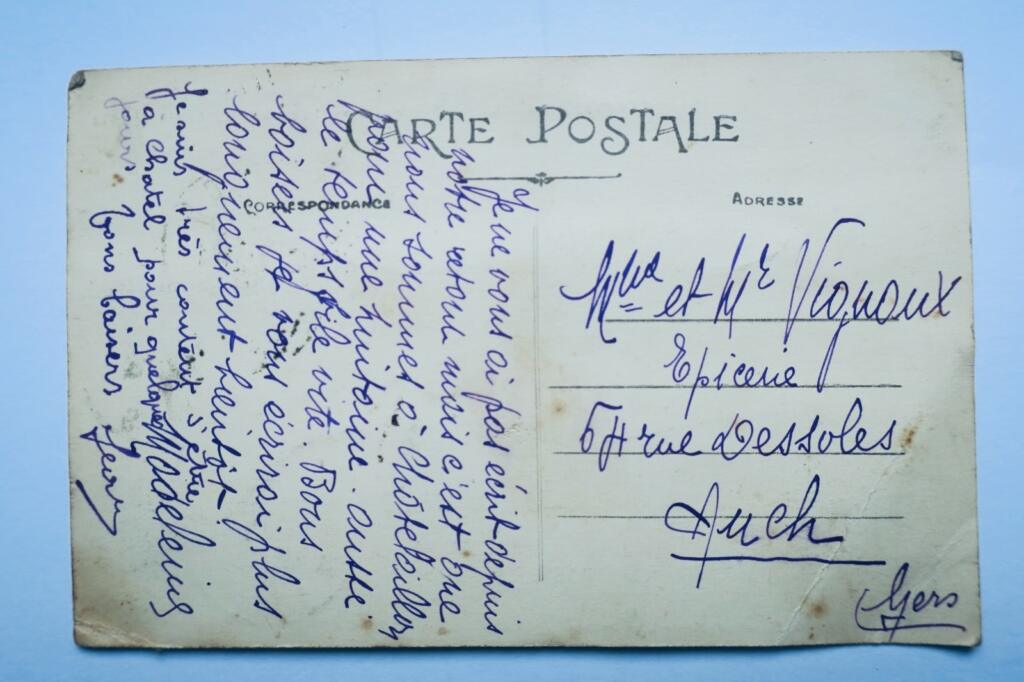 CARTE POSTALE
CORRESPONDANCE
ADRESSE
Je ne vous ai pas écrit depuis
notre retour mais c'est que
nous sommes à Châtelaillon
pour une huitaine. aussi
le temps file vite. Bons
baisers je vous écrirai plus
longuement bientôt.
Madeleine
Je suis très content d'être
à Chatel pour quelques
jours Bons baisers
Jean
Mme et Mr Vignaux
Epicerie
64 rue Dessoles
Auch
Gers